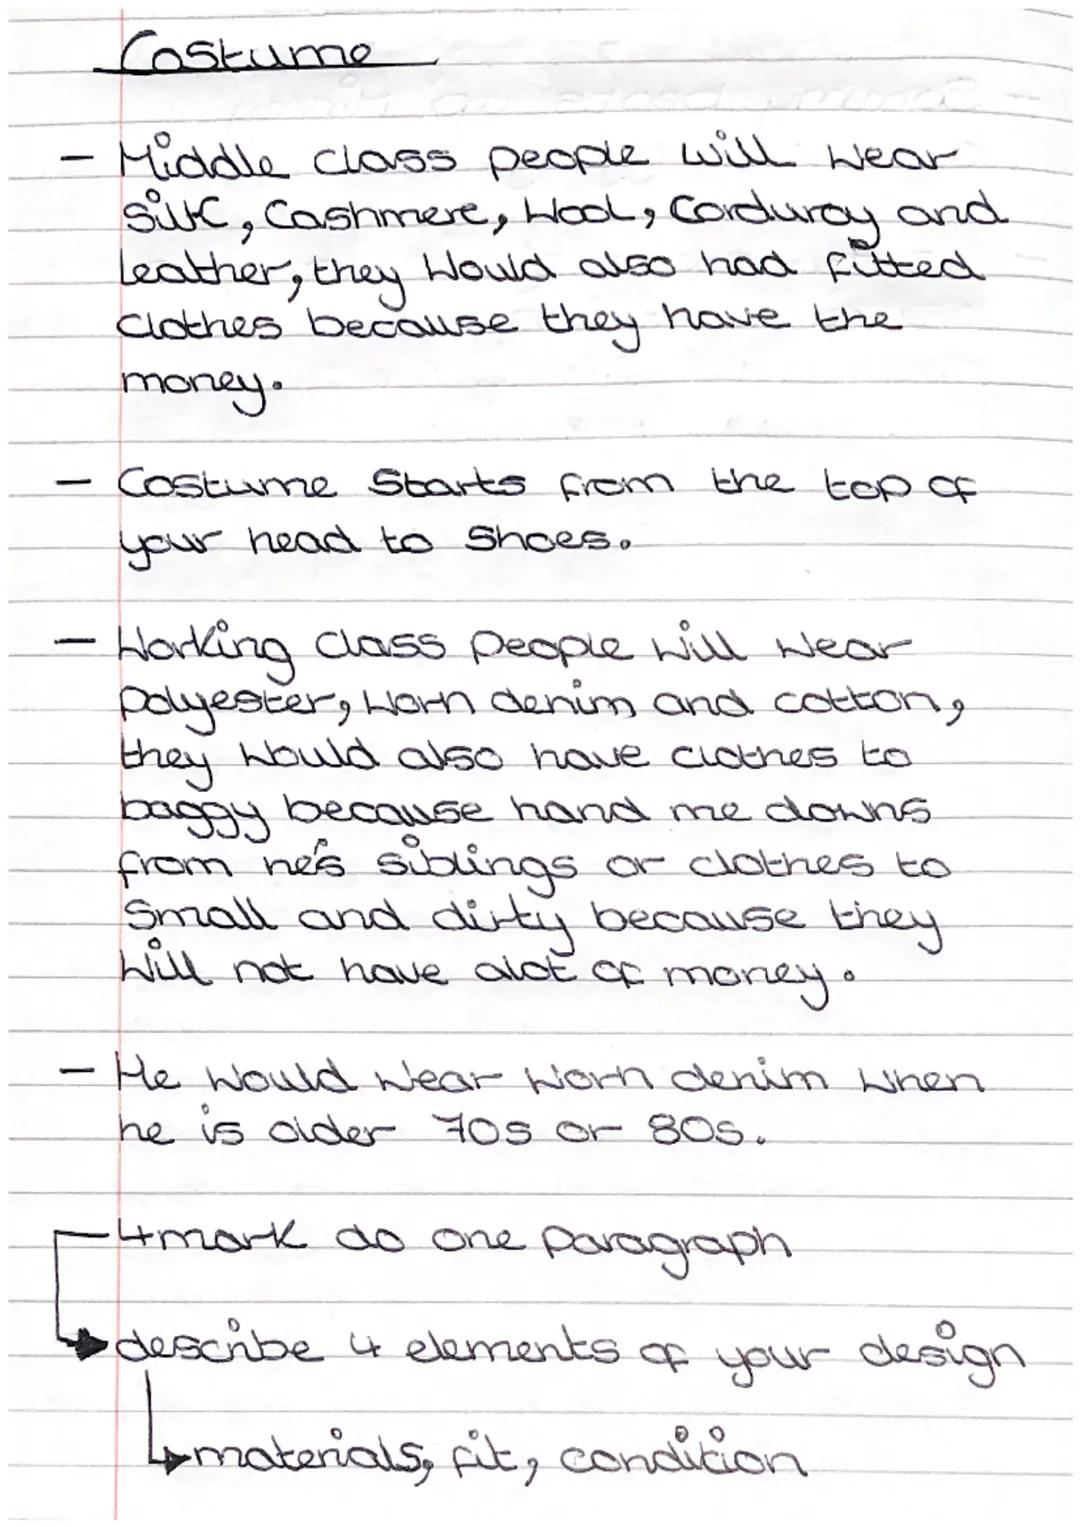 Costume
- Middle class people will wear
silk, Cashmere, Wool, Corduroy and
leather, they Would also had fitted
clothes because they have the
money.
- Costume Starts from the top of
your head to Shoes.
- Working Class People will wear
Polyester, Worn denim and cotton,
they Would also have clothes to
baggy because hand me downs
from he's siblings or clothes to
Small and dirty because they
Will not have alot of money.
- He Would wear Worn denim when
he is older 70s or 80s.
- 4mark do one Paragraph
describe 4 elements of your design
materials, fit, condition